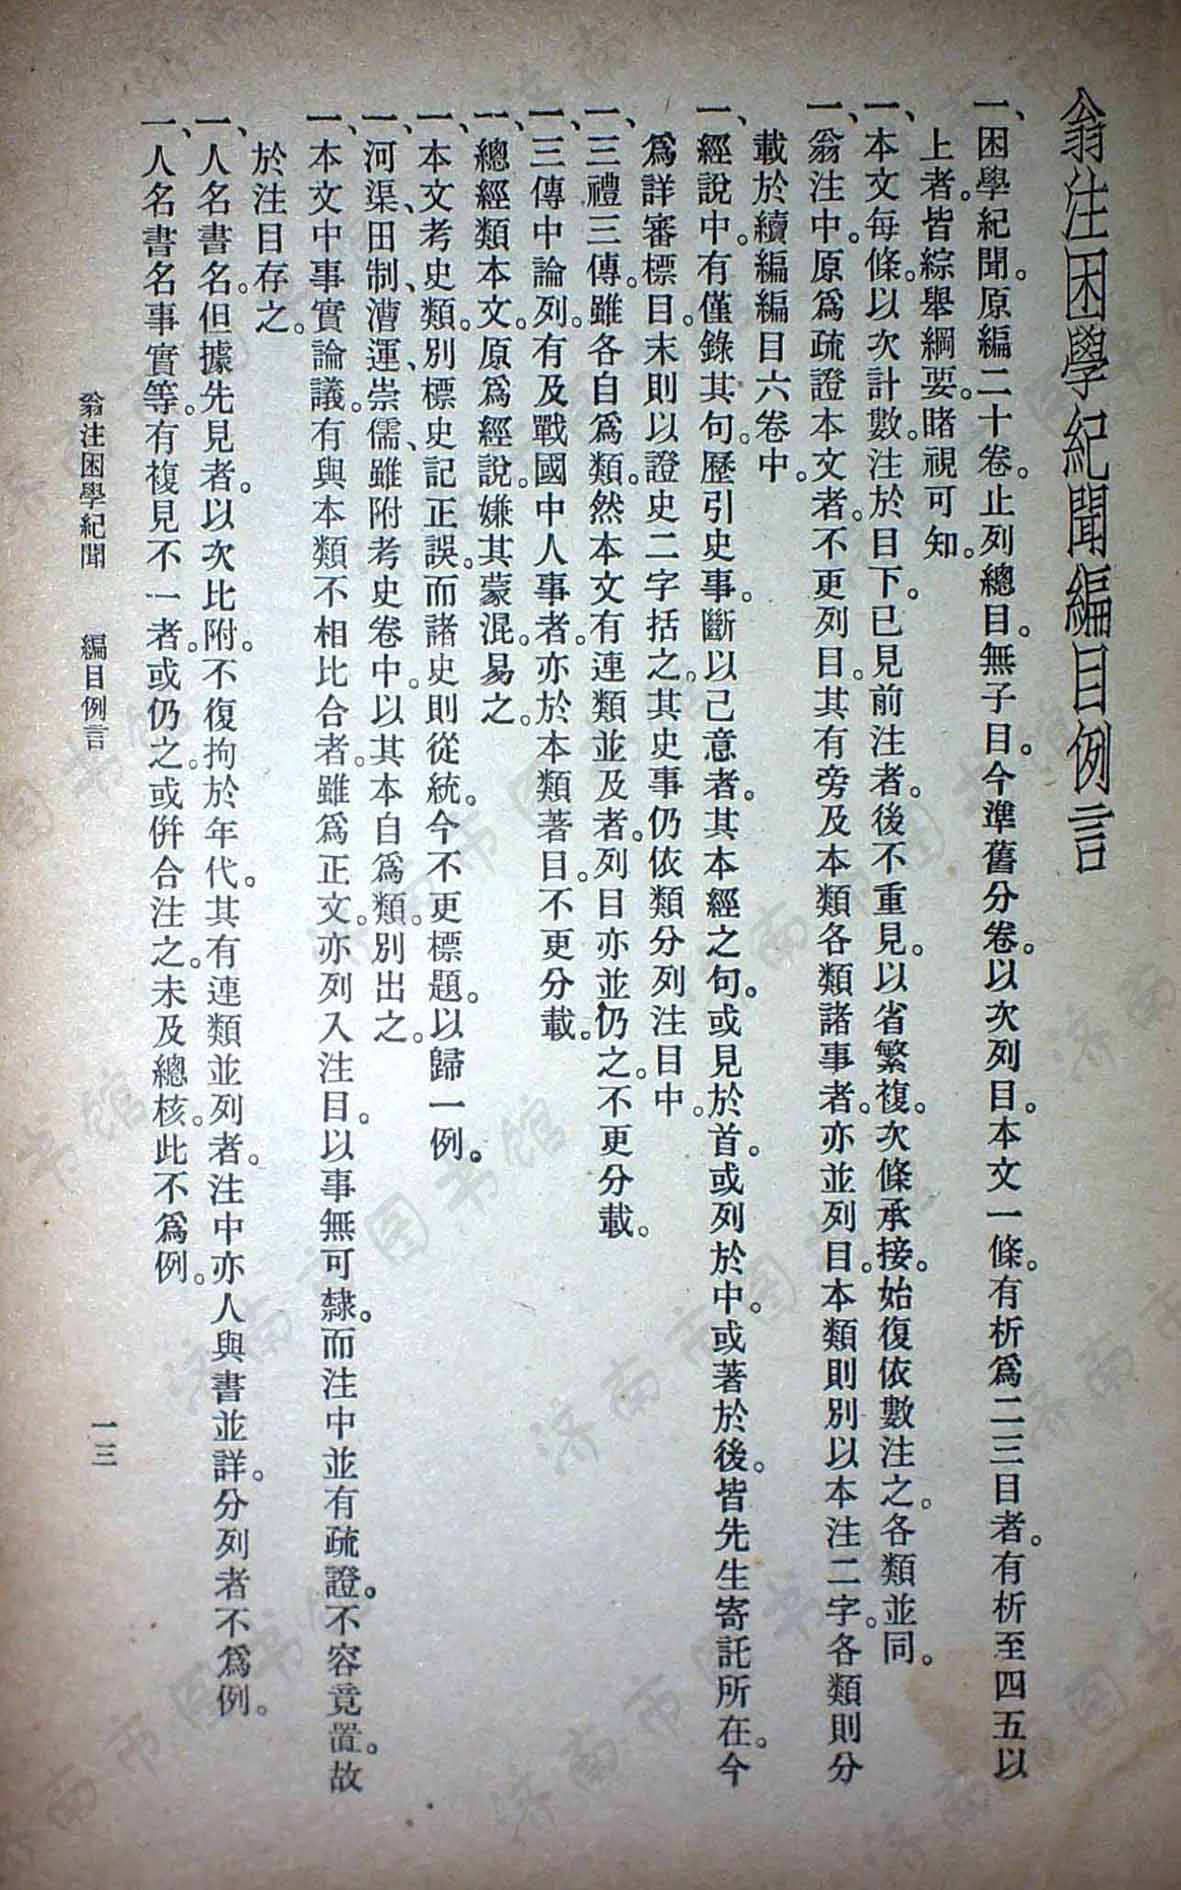 翁注困學紀聞編目例言
一、困學紀聞。原編二十卷。止列總目。無子目。今準舊分卷。以次列目。本文一條。有析爲二三目者。有析至四五以
上者。皆綜舉綱要。睹視可知。
一、本文每條。以次計數。注於目下。已見前注者。後不重見。以省繁複。次條承接。始復依數注之。各類並同。
一、翁注中。原爲疏證本文者。不更列目。其有旁及本類各類諸事者。亦並列目。本類則別以本注二字。各類則分
載於續編編目六卷中。
一、經說中。有僅錄其句。歷引史事。斷以己意者。其本經之句。或見於首。或列於中。或著於後。皆先生寄託所在。今
爲詳審標目。末則以證史二字括之。其史事仍依類分列注目中。
一、三禮三傳。雖各自爲類。然本文有連類並及者。列目亦並仍之。不更分載。
一、三傳中論列。有及戰國中人事者。亦於本類著目。不更分載。
一、總經類本文。原爲經說。嫌其蒙混。易之。
一、本文考史類。別標史記正誤。而諸史則從統。今不更標題。以歸一例。
一、河渠、田制、漕運、崇儒、雖附考史卷中。以其本自爲類。別出之。
一、本文中事實論議。有與本類不相比合者。雖爲正文。亦列入注目。以事無可隸。而注中並有疏證。不容竟置。故
於注目存之。
一、人名書名。但據先見者。以次比附。不復拘於年代。其有連類並列者。注中亦人與書並詳。分列者不爲例。
一、人名書名事實等。有複見不一者。或仍之。或倂合注之。未及總核。此不爲例。
翁注困學紀聞 編目例言
一三
济南市图书馆